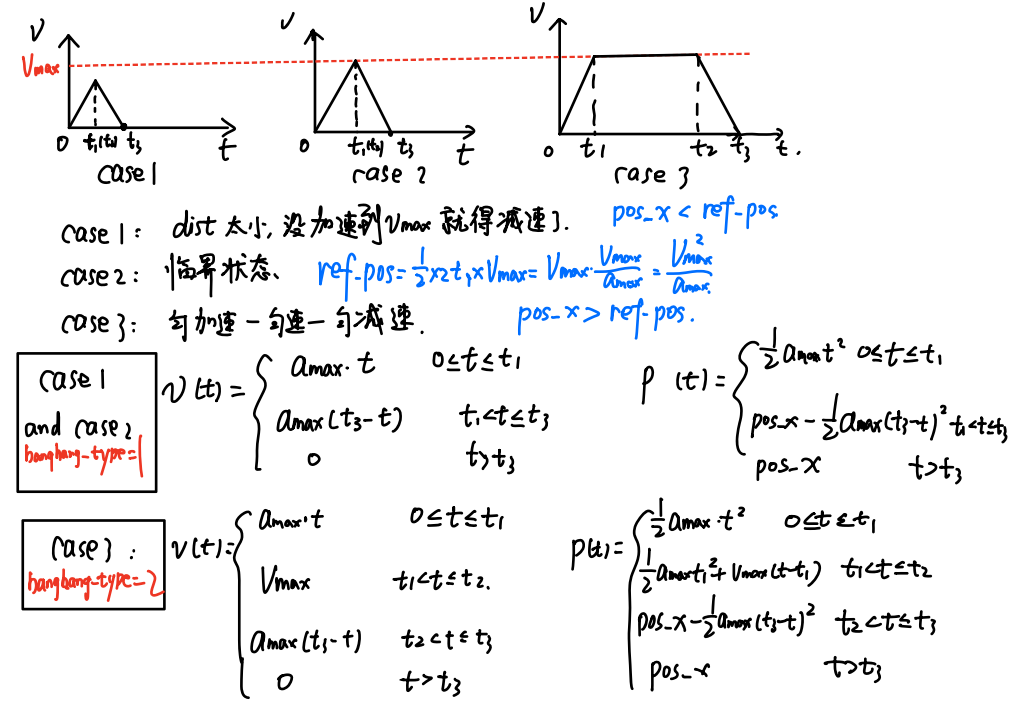 V V V
Vmax
0 t₁(t₂) t₃ t 0 t₁(t₂) t₃ t 0 t₁ t₂ t₃ t.
case1 case 2 case 3
case1: dist 太小, 没加速到Vmax 就得减速了. pos_x < ref-pos
case2: 临界状态、 ref-pos = 1/2 x2t₁xVmax = Vmax·Vmax/amax = Vmax²/amax.
case3: 匀加速一匀速一匀减速. pos_x > ref-pos.
case1
and case2
bangbang-type=1
V(t) = { amax·t 0≤t≤t₁
amax(t₃-t) t₁<t≤t₃
0 t>t₃
P (t) = { 1/2 amax t² 0≤t≤t₁
pos_x - 1/2 amax(t₃-t)² t₁<t≤t₃
pos_x t>t₃
case3:
bangbang-type=2
V(t) = { amax·t 0≤t≤t₁
Vmax t₁<t≤t₂.
amax(t₃-t) t₂<t≤t₃
0 t>t₃
p(t) = { 1/2 amax·t² 0≤t≤t₁
1/2 amaxt₁² + Vmax(t-t₁) t₁<t≤t₂
pos_x - 1/2 amax(t₃-t)² t₂<t≤t₃
pos_x t>t₃